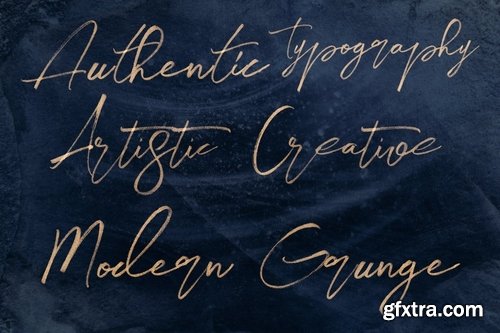 Authentic typography
Artistic Creative
Modern Grunge
gfxtra.com